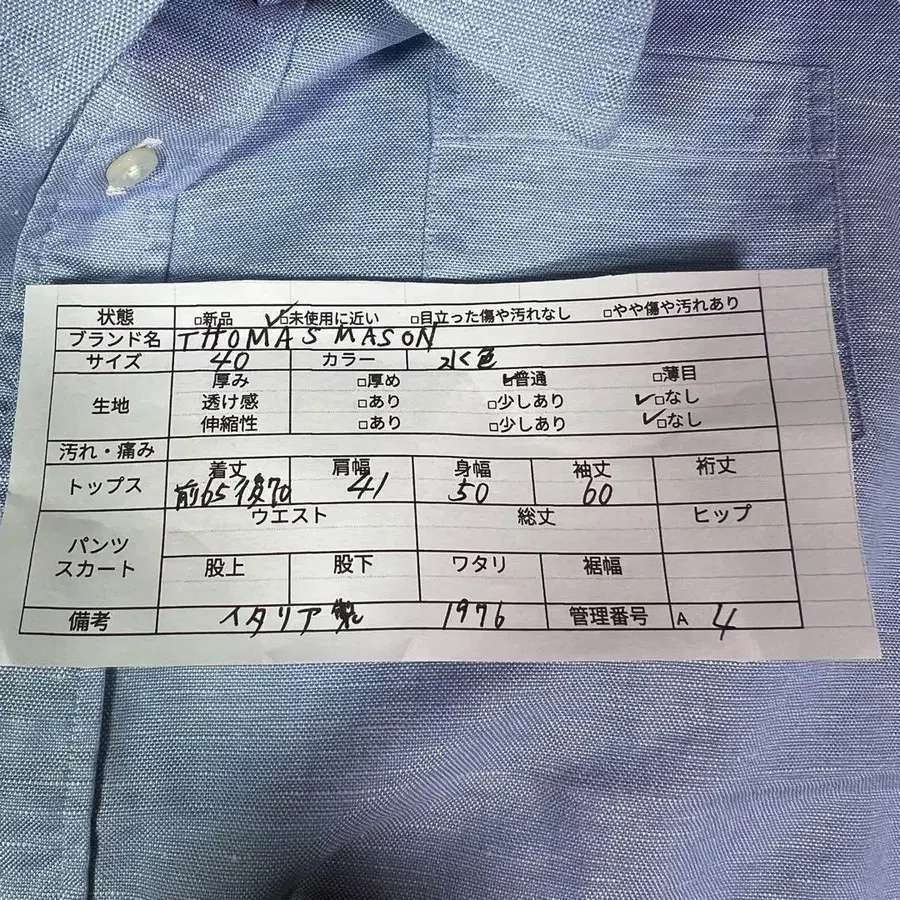 状態 □新品 ☑未使用に近い □目立った傷や汚れなし □やや傷や汚れあり
ブランド名 THOMAS MASON
サイズ 40 カラー 水色
生地 厚み □厚め ☑普通 □薄目
透け感 □あり □少しあり ☑なし
伸縮性 □あり □少しあり ☑なし
汚れ・痛み
トップス 着丈 肩幅 身幅 袖丈 裄丈
前65後70 41 50 60
パンツ スカート ウエスト 総丈 ヒップ
股上 股下 ワタリ 裾幅
備考 イタリア製 1976 管理番号 A 4